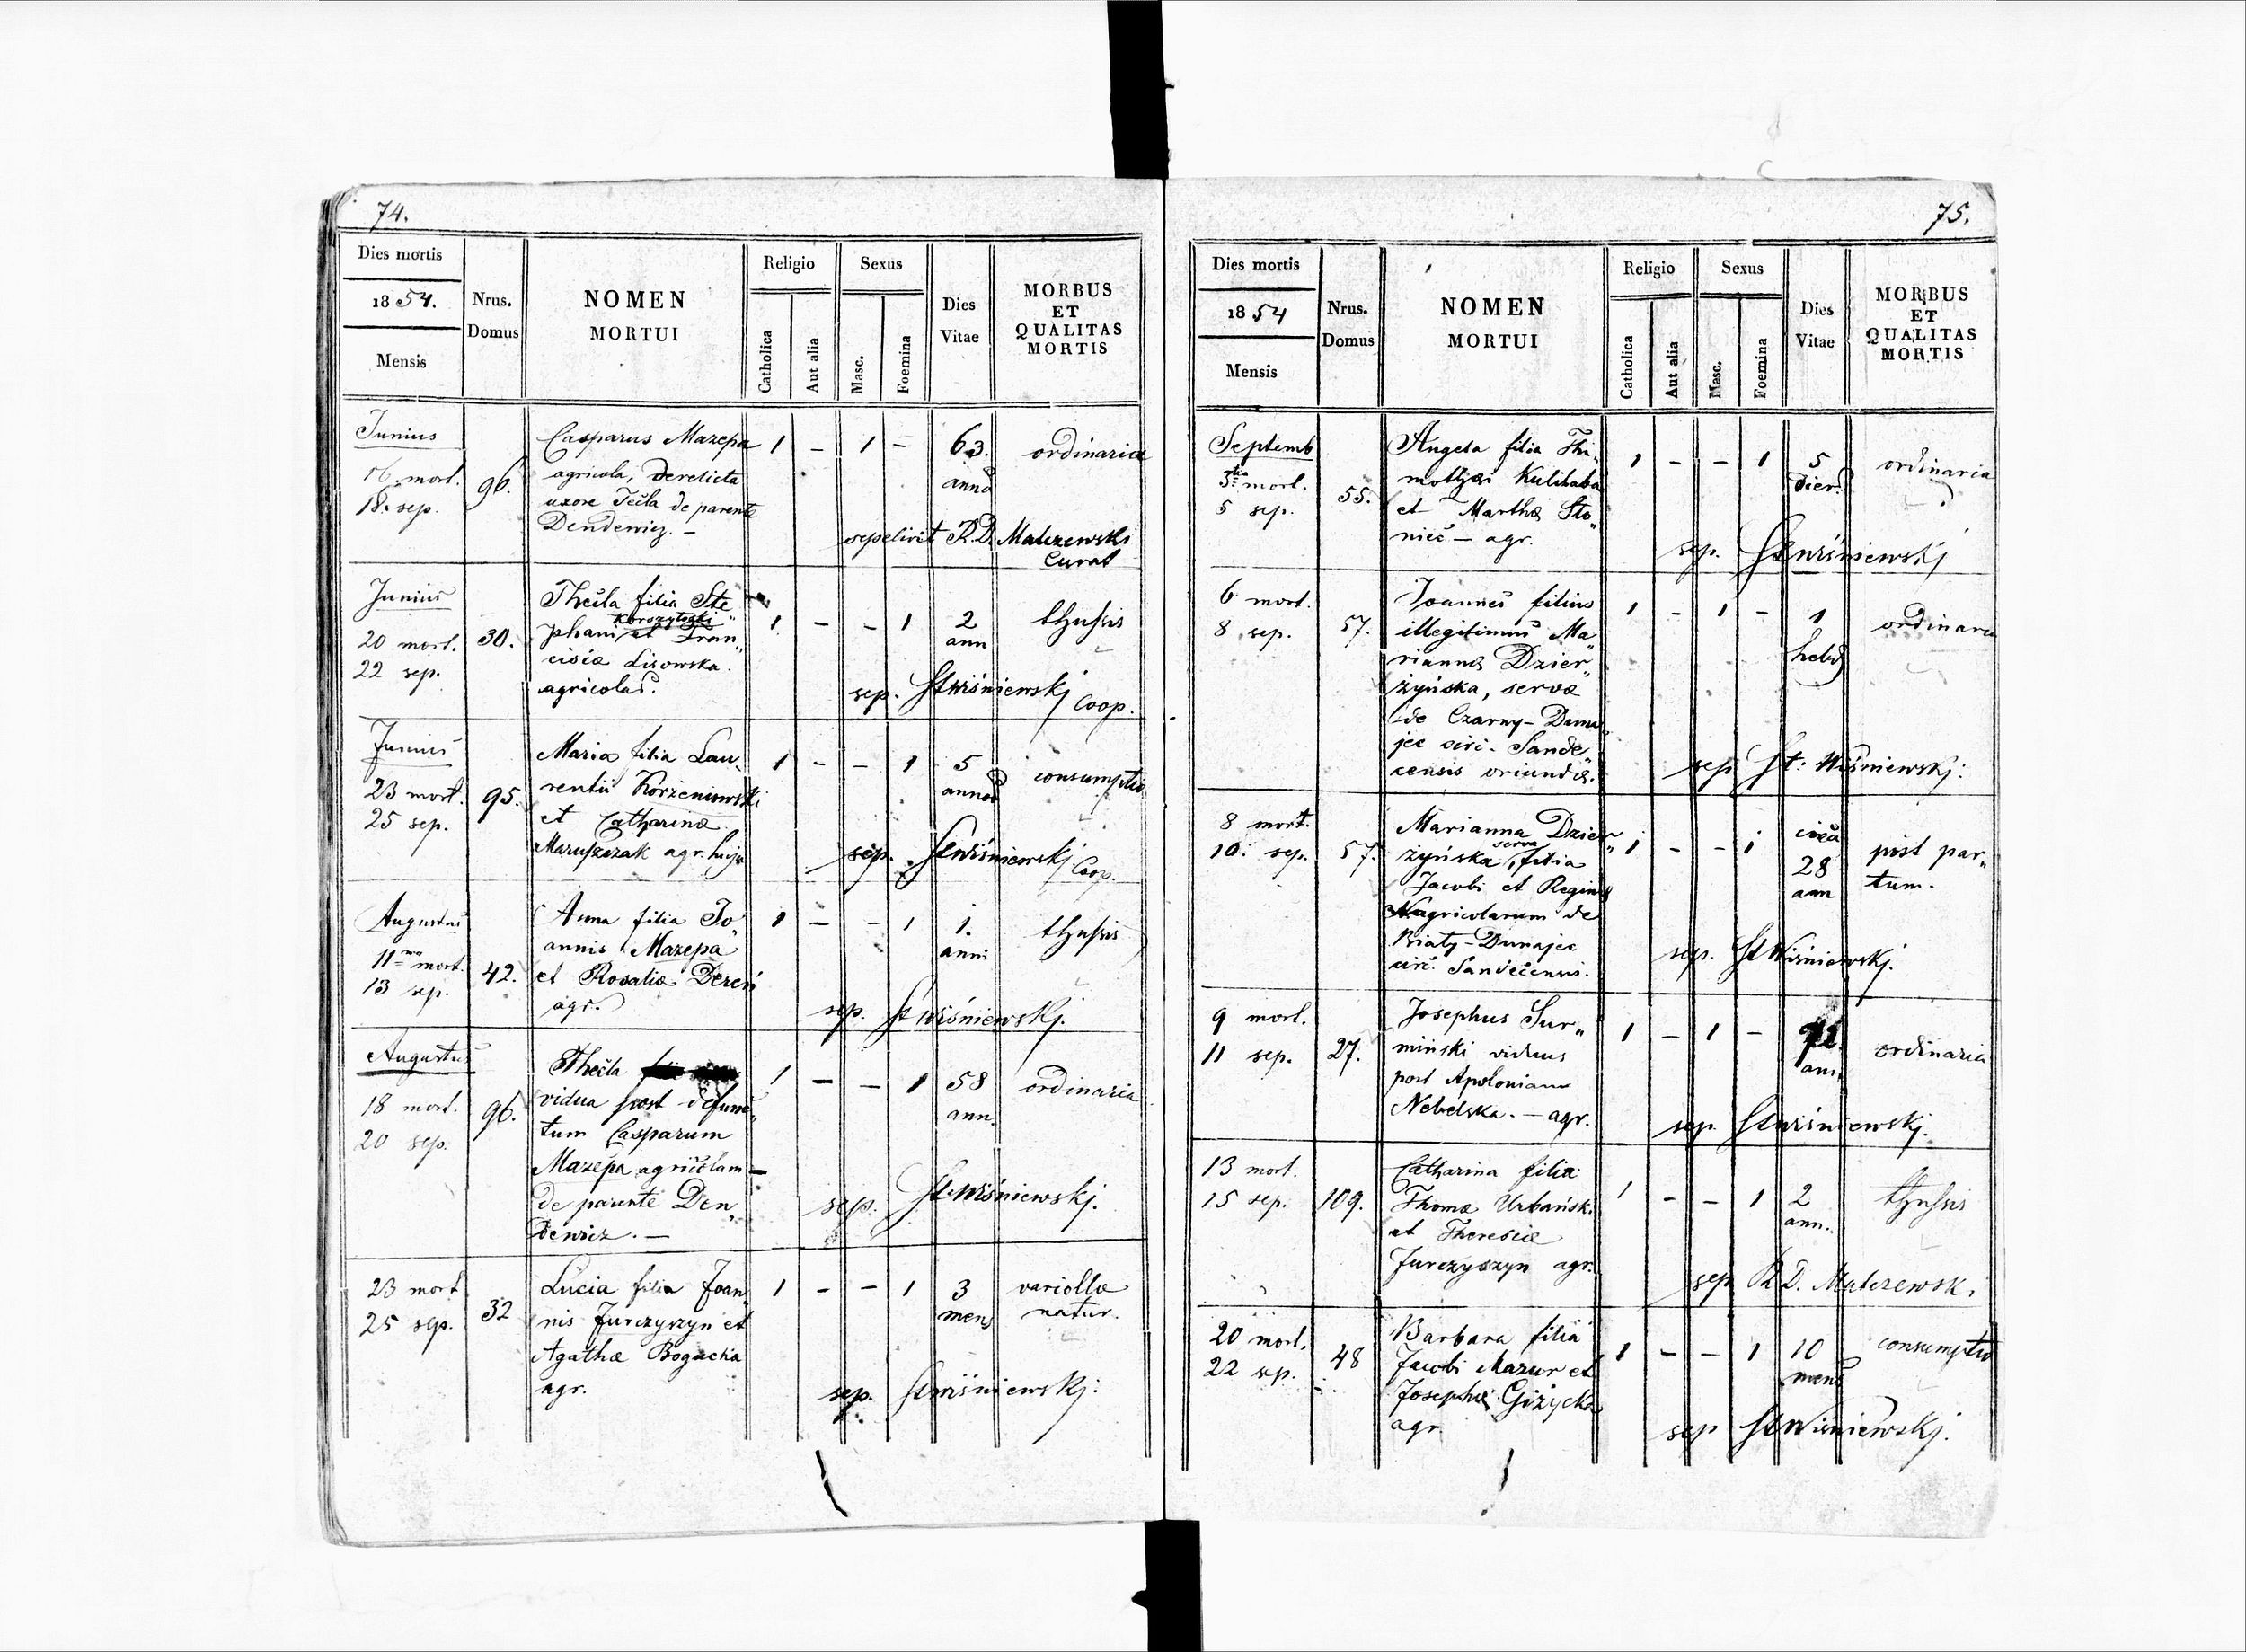 74.
Dies mortis
1854.
Mensis
Nrus.
Domus
NOMEN
MORTUI
Religio
Catholica
Aut alia
Sexus
Masc.
Foemina
Dies
Vitae
MORBUS
ET
QUALITAS
MORTIS
Junius
16 mort.
18. sep.
96.
Casparus Mazepa
agricola, derelicta
uxore Tecla de parente
Dendewicz. –
1 – 1 –
63.
anno
ordinaria
sepelivit R.D. Malczewski
Curat
Junius
20 mort.
22 sep.
30.
Thecla filia Ste„
Korczyński
phani et Fran„
cisiæ Lisowska.
agricola.
1 – – 1
2
ann
thussis
sep. St Wiśniewskj
Coop.
Junius
23 mort.
25 sep.
95.
Maria filia Lau„
rentii Korzeniowski
et Catharinæ
Maruszczak agr. hujus
1 – – 1
5
annos
consumptio
sep. St Wiśniewskj
Coop.
Augustus
11ma mort.
13 sep.
42.
Anna filia Jo„
annis Mazepa
et Rosaliæ Dereń
agr.
1 – – 1
1.
anni
thussis
sep. St Wiśniewskj.
Augustus
18 mort.
20 sep.
96.
Thecla
vidua post defunc„
tum Casparum
Mazepa agricolam –
de parente Den„
dewicz. –
1 – – 1
58
ann.
ordinaria
sep. St Wiśniewskj.
23 mort
25 sep.
32
Lucia filia Joan„
nis Jurczyszyn et
Agathæ Bogacka
agr.
1 – – 1
3
mens
variollæ
natur.
sep. St Wiśniewskj:
75.
Dies mortis
1854
Mensis
Nrus.
Domus
NOMEN
MORTUI
Religio
Catholica
Aut alia
Sexus
Masc.
Foemina
Dies
Vitae
MORBUS
ET
QUALITAS
MORTIS
Septemb
5 mort.
5 sep.
55.
Angela filia Thi„
mothæi Kulihaba
et Marthæ Sto„
nieć – agr.
1 – – 1
5
dier.
ordinaria
sep. St Wiśniewskj
6 mort.
8 sep.
57.
Joannes filius
illegitimus Ma„
riannæ Dzier„
żyńska, servæ
de Czarny-Duna„
jec circ. Sande„
censis oriundæ.
1 – 1 –
1
hebd
ordinaria
sep St: Wiśniewskj:
8 mort.
10. sep.
57.
Marianna Dzier„
serva
żyńska, filia
Jacobi et Reginæ
agricolarum de
Biały-Dunajec
circ. Sandecensis.
1 – – 1
circa
28
ann
post par„
tum.
sep. St Wiśniewskj.
9 mort.
11 sep.
27.
Josephus Sur„
miński viduus
post Apoloniam
Nebelska. – agr.
1 – 1 –
ann.
ordinaria
sep. St Wiśniewskj.
13 mort.
15 sep.
109.
Catharina filia
Thomæ Urbański
et Theresiæ
Jurczyszyn agr.
1 – – 1
2
ann.
thussis
sep R.D. Malczewski
20 mort.
22 sep.
48
Barbara filia
Jacobi Mazur et
Josephæ Giżycka
agr.
1 – – 1
10
mens
consumptio
sep St Wiśniewskj.